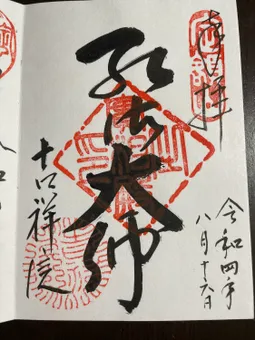 奉拝
令和四年
八月十六日
弘法大師
吉祥院